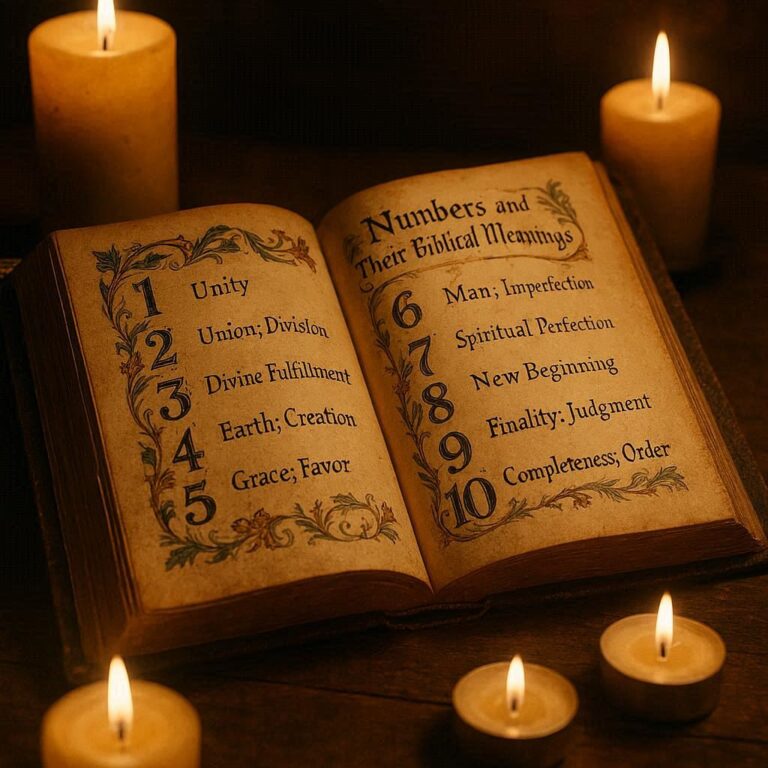 1 Unity
2 Union; Division
3 Divine Fulfillment
4 Earth; Creation
5 Grace; Favor
Numbers and
Their Biblical Meanings
6 Man; Imperfection
7 Spiritual Perfection
8 New Beginning
9 Finality: Judgment
10 Completeness; Order